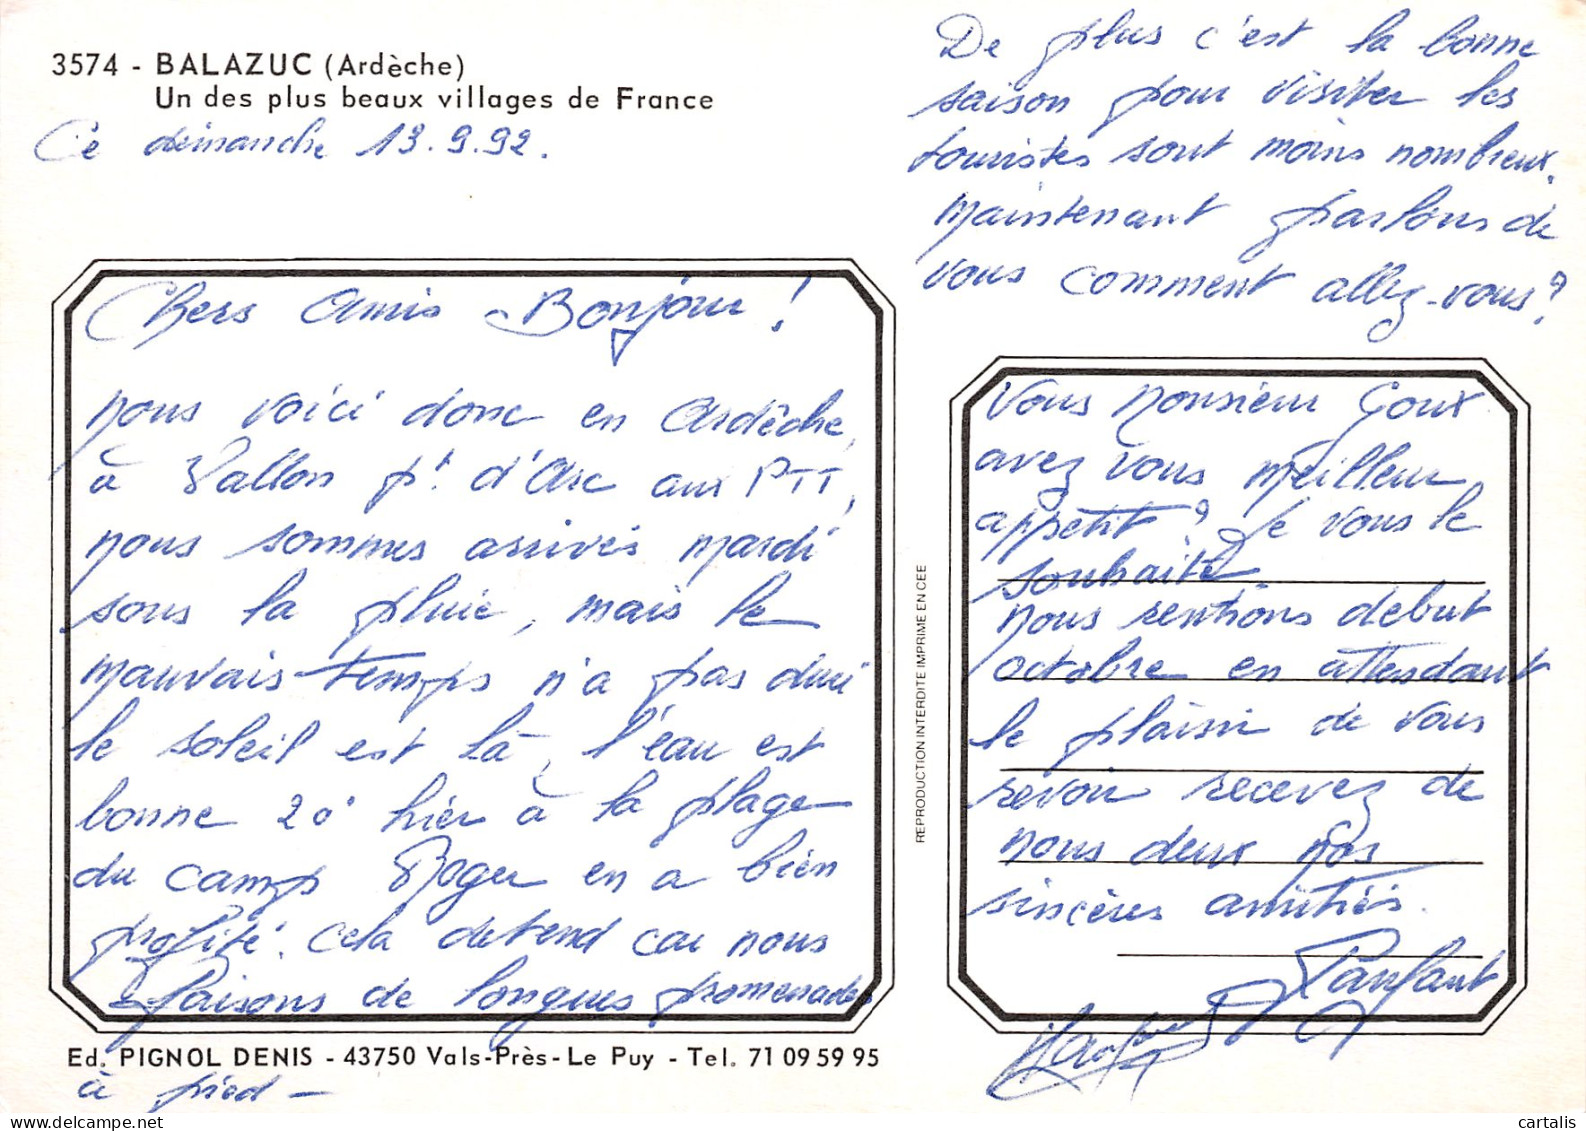 3574 - BALAZUC (Ardèche)
Un des plus beaux villages de France
Ce dimanche 13.9.92.
Chers Amis Bonjour !
nous voici donc en Ardèche,
à Vallon pt. d'Arc aux PTT,
nous sommes arrivés mardi
sous la pluie, mais le
mauvais temps n'a pas duré
le soleil est là, l'eau est
bonne 20° hier à la plage
du camp Roger en a bien
profité. Cela detend car nous
faisons de longues promenades
Ed. PIGNOL DENIS - 43750 Vals-Près-Le Puy - Tel. 71 09 59 95
à pied -
De plus c'est la bonne
saison pour visiter les
touristes sont moins nombreux.
Maintenant parlons de
vous comment allez-vous ?
Vous Monsieur Goux
avez vous meilleur
appétit ? Je vous le
souhaite
nous rentrons debut
octobre en attendant
le plaisir de vous
revoir recevez de
nous deux nos
sincères amitiés.
REPRODUCTION INTERDITE IMPRIME EN CEE
cartalis